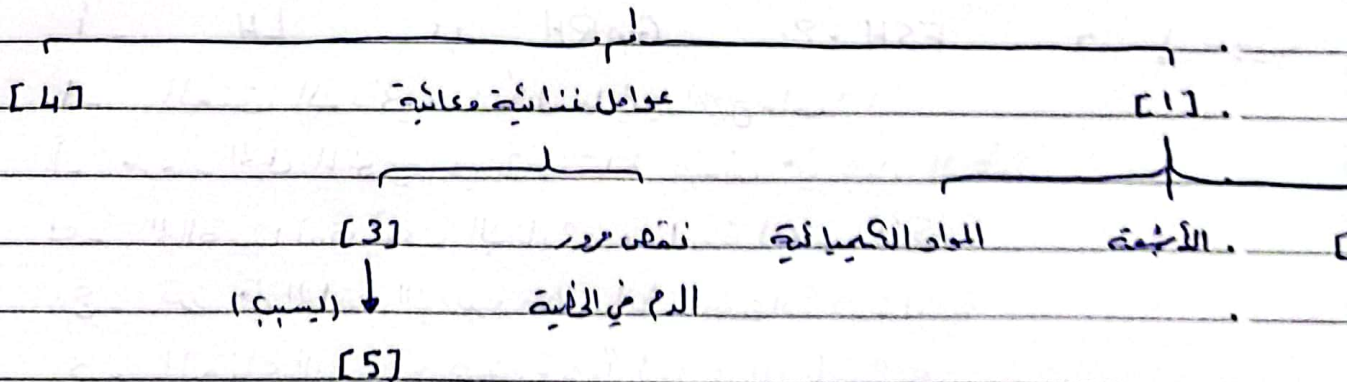 [1] عوامل غذائية وعائية [4]
الأشعة المواد الكيميائية نقص مرور [3]
الدم في الخصية (يسبب)
[5]